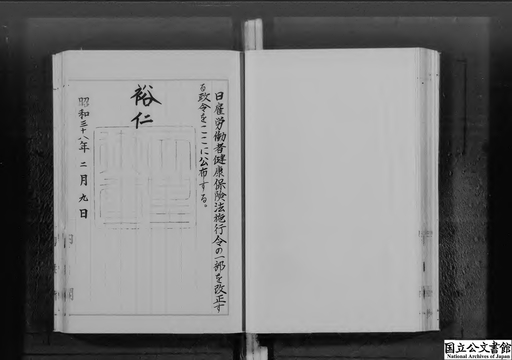 日雇労働者健康保険法施行令の一部を改正す
る政令をここに公布する。
裕仁
昭和三十八年二月九日
国立公文書館
National Archives of Japan